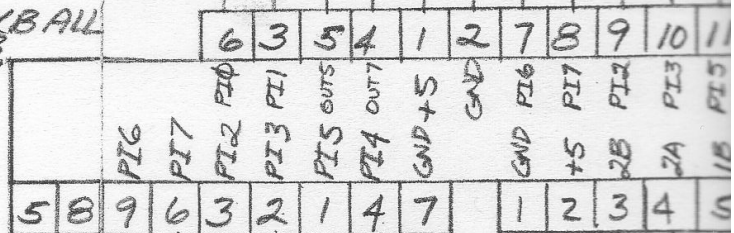 KBALL
6 3 5 4 1 2 7 8 9 10 11
PIØ PI1 OUT5 OUT7 +5 GND PI6 PI7 PI2 PI3 PI5
PI6 PI7 PI2 PI3 PI5 PI4 GND GND +5 2B 2A 1B
5 8 9 6 3 2 1 4 7 1 2 3 4 5